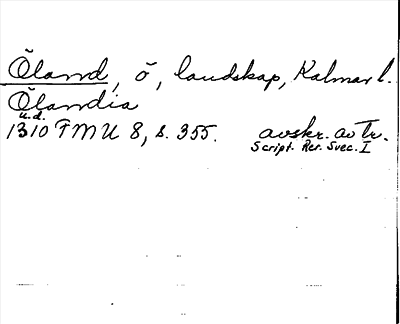 Öland, ö, landskap, Kalmar l.
Ölandia
u.d.
1310 FMU 8, s. 355. avskr. av tr.
Script. Rer. Svec. I